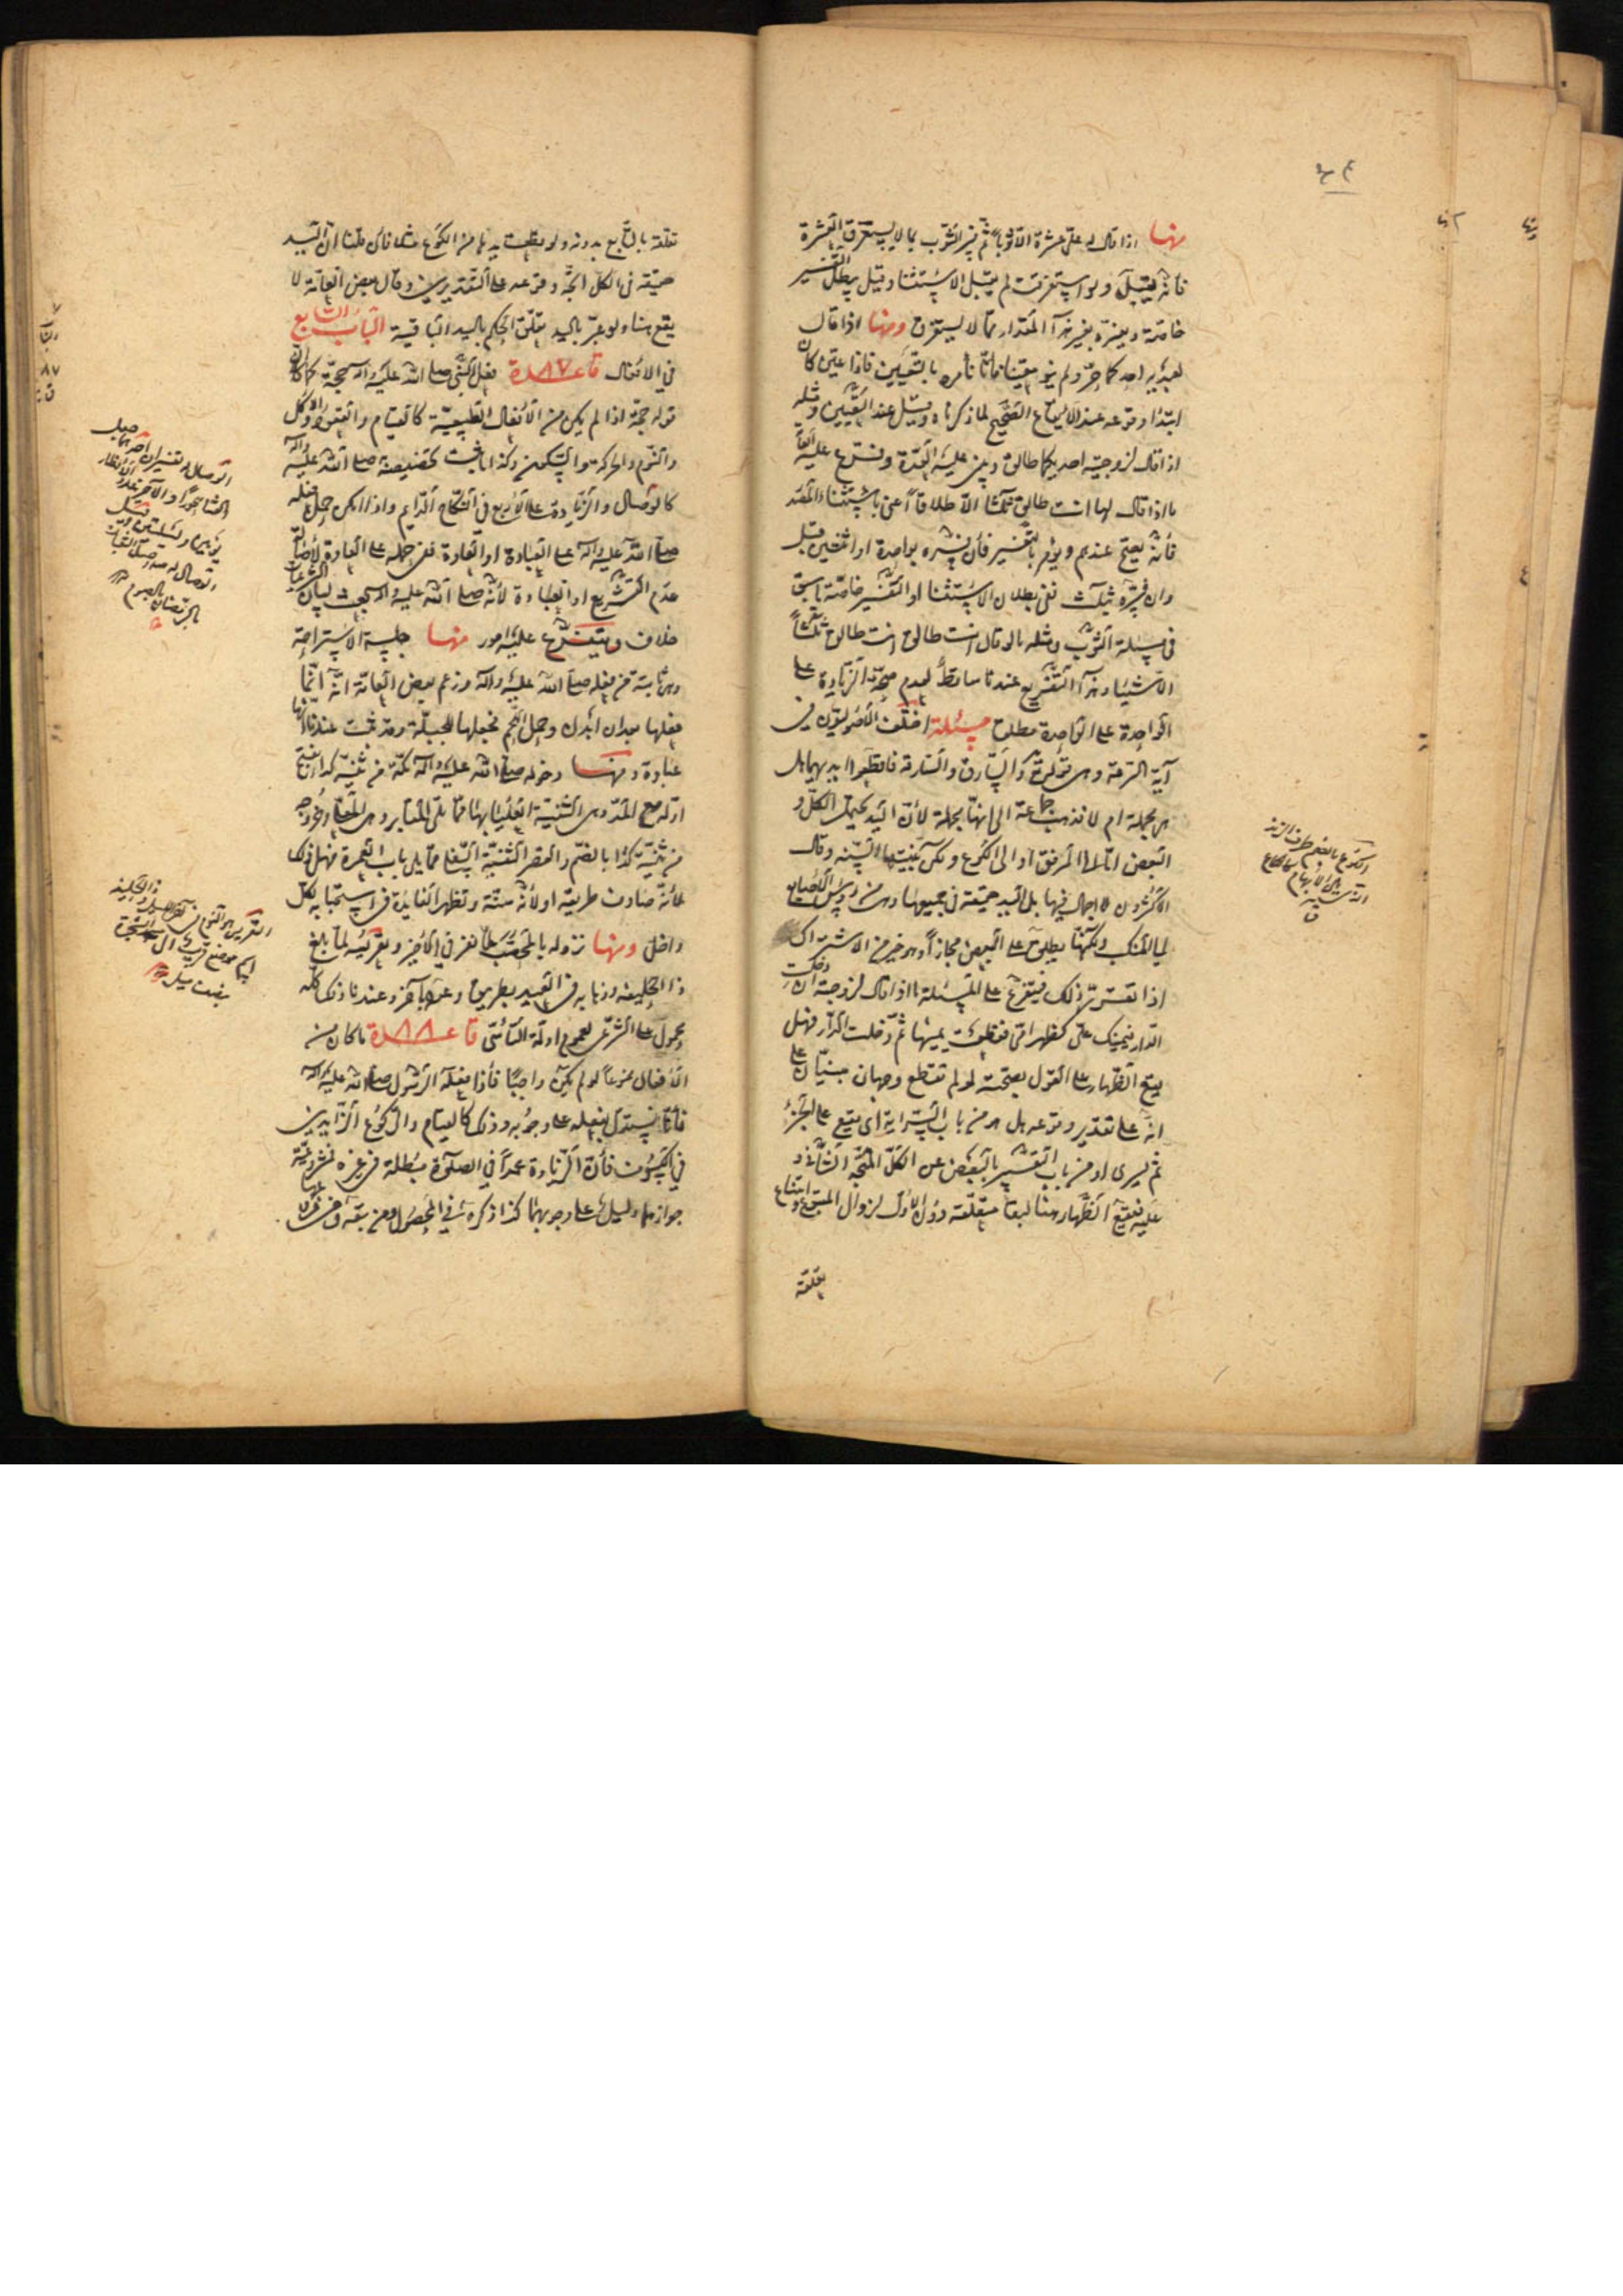 منها اذا قال له علي عشرة الا ثوبا ثم فسر الثوب بما لا يستغرق العشرة
فانه يقبل ولو استغرقت لم يقبل الاستثناء وقيل يبطل التفسير
خاصة ويفسره بغير هذا المقدار مما لا يستغرق ومنها اذا قال
لعبديه احدكما حر ولم ينو معينا فانا نأمره بالتعيين فاذا عين كان
ابتداء وقوعه عند الايقاع الصحيح لما ذكرناه وقيل عند التعيين ومثله
اذا قال لزوجتيه احديكما طالق وبني عليه العدة وتفرع عليه ايضا
ما اذا قال لها انت طالق ثلثا الا طلاقا اعني باستثناء المقدر
فانه يصح عندهم ويؤمر بالتفسير فان فسره بواحدة او اثنتين قبل
وان فسره بثلث ففي بطلان الاستثناء او التفسير خاصة ما سبق
في مسئلة الثوب ومثله ما لو قال انت طالق انت طالق ثلثا
الا شيئا وهذا التفريع عندنا ساقط لعدم صحة الزيادة على
الواحدة على الواحدة مطلقا مسئلة اختلف الاصوليون في
آية السرقة وهي قوله والسارق والسارقة فاقطعوا ايديهما هل
هي مجملة ام لا فذهب جماعة الى انها مجملة لان اليد يحتمل الكل و
البعض اما الى المرفق او الى الكوع ولكن بينتها السنة وقال
الاكثرون لا اجمال فيها بل اليد حقيقة في جميعها وهي من رؤس الاصابع
الى المنكب ولكنها يطلق على البعض مجازا وهو خير من الاشتراك
اذا تقرر ذلك فيتفرع على المسئلة ما اذا قال لزوجته ان دخلت
الدار فيمينك علي كظهر امي فقطعت يمينها ثم دخلت الدار فهل
يقع الظهار على القول بصحته لو لم تقطع وجهان مبنيان على
انه على تقدير وقوعه هل هو من باب السراية اي يقع على الجزء
ثم يسري او من باب التعبير بالبعض عن الكل المتجه الثاني و
عليه فيقع الظهار هنا لبقاء متعلقه دون الاول لزوال المتبوع وامتناع
تعلقه
الكوع بالضم طرف الزند
الذي يلي الابهام كالكاع
ق
تعلقه بالتابع بدونه ولو قطعت يدها من الكوع مثلا فان قلنا ان اليد
حقيقة في الكل اتجه وقوعه على التقديرين وقال بعض العامة لا
يقع هنا ولو عبر باليد يتعلق الحكم باليد الباقية الباب السابع
في الافعال قاعدة ٨٧ فعل النبي صلى الله عليه وآله حجة كما ان
قوله حجة اذا لم يكن من الافعال الطبيعية كالقيام والقعود والاكل
والنوم والحركة والسكون وكذا ما ثبت تخصيصه صلى الله عليه وآله
كالوصال والزيادة على الاربع في النكاح الدايم واذا امكن حمل فعله
صلى الله عليه وآله على العبادة او العادة ففي حمله على العادة لاصالة
عدم التشريع او العبادة لانه صلى الله عليه وآله بعث لبيان الشرعيات
خلاف ويتفرع عليه امور منها جلسة الاستراحة
وهي ثابتة من فعله صلى الله عليه وآله وزعم بعض العامة انه انما
فعلها بعد ان بدن وحمل اللحم فجعلها للجبلة وقد ثبت عندنا انها
عبادة ومنها دخوله صلى الله عليه وآله مكة من ثنية كداء بفتح
اوله مع المد وهي الثنية العليا بها مما يلي المقابر وهي المعلى وخروجه
من ثنية كدا بالضم والقصر الثنية السفلى مما يلي باب العمرة فهل ذلك
لانه صادف طريقه او لانه سنة وتظهر الفائدة في استحبابه لكل
داخل ومنها نزوله بالمحصب لما نفر في الاخير وتعريسه لما بلغ
ذا الحليفة وذهابه في العيد بطريق وعوده بآخر وعندنا ذلك كله
محمول على الشرعي لعموم ادلة التأسي قاعدة ٨٨ ما كان من
الافعال ممنوعا لو لم يكن واجبا فاذا فعله الرسول صلى الله عليه وآله
فانا نستدل بفعله على وجوبه وذلك كالقيام والركوع الزايدين
في الكسوف فان الزيادة عمدا في الصلوة مبطلة في غيره فمشروعية
جوازهما دليل على وجوبهما كذا ذكره في المحصول ومن تبعه
الوصال له تفسيران احدهما جعل
العشاء سحورا والآخر
يومين وليلتين وقيل
الوصال
بالرمضان بالصوم
التعريس هو النوم في آخر الليل وذو الحليفة
اسم موضع قريب الى الشجرة
بنصف ميل